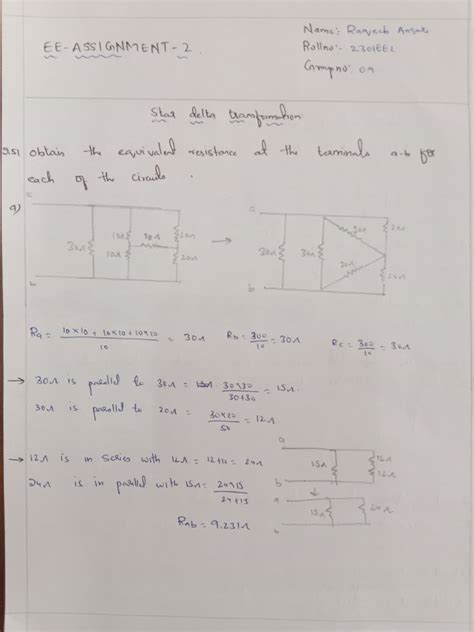 Name: Ranjeeb Ansari
EE-ASSIGNMENT-2
Rollno:- 2301EE2
Groupno: 09
Star delta transformation
2.51 obtain the equivalent resistance at the terminals a-b for
each of the circuits.
a)
a
30Ω 10Ω 10Ω 30Ω 20Ω 20Ω
b
→
a
30Ω 30Ω 30Ω 20Ω 20Ω
b
Ra = 10×10 + 10×10 + 10×20 / 10 = 30Ω
Rb = 300/10 = 30Ω
Rc = 300/10 = 30Ω
→ 30Ω is parallel to 30Ω = 30×30/30+30 = 15Ω
30Ω is parallel to 20Ω = 30×20/50 = 12Ω
→ 12Ω is in series with 12Ω = 12+12 = 24Ω
24Ω is in parallel with 15Ω = 24×15/24+15
Rab = 9.231Ω
a
15Ω 12Ω 12Ω
b
a
15Ω
b